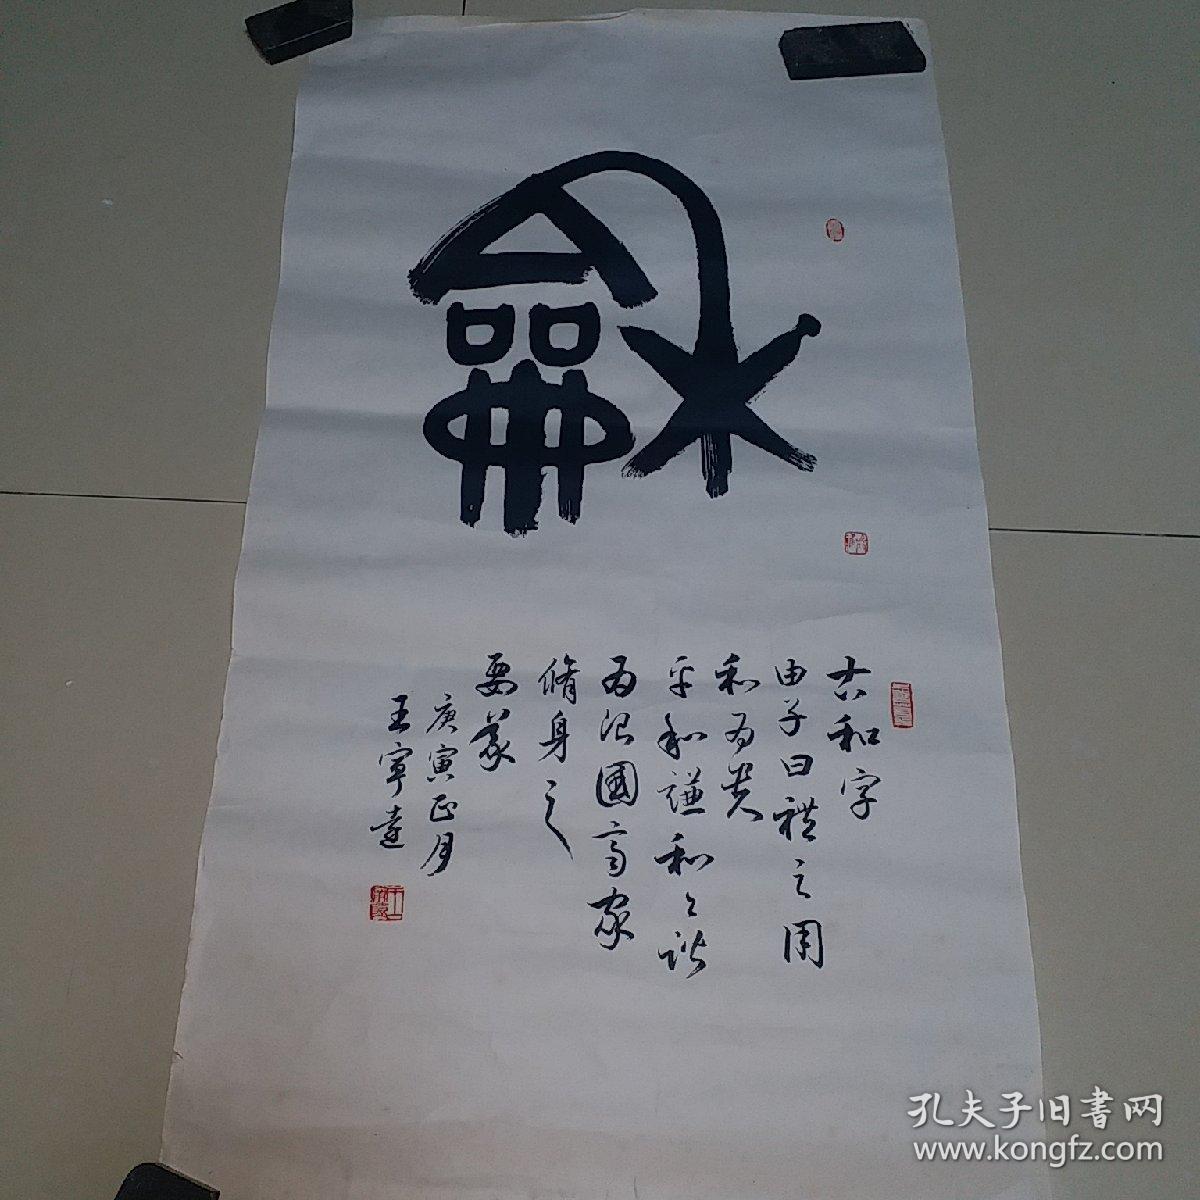 龢
古和字
由子曰禮之用
和為貴
平和謙和々諧
為治國齊家
脩身之
要義
庚寅正月
王寧遠
孔夫子旧書网
www.kongfz.com